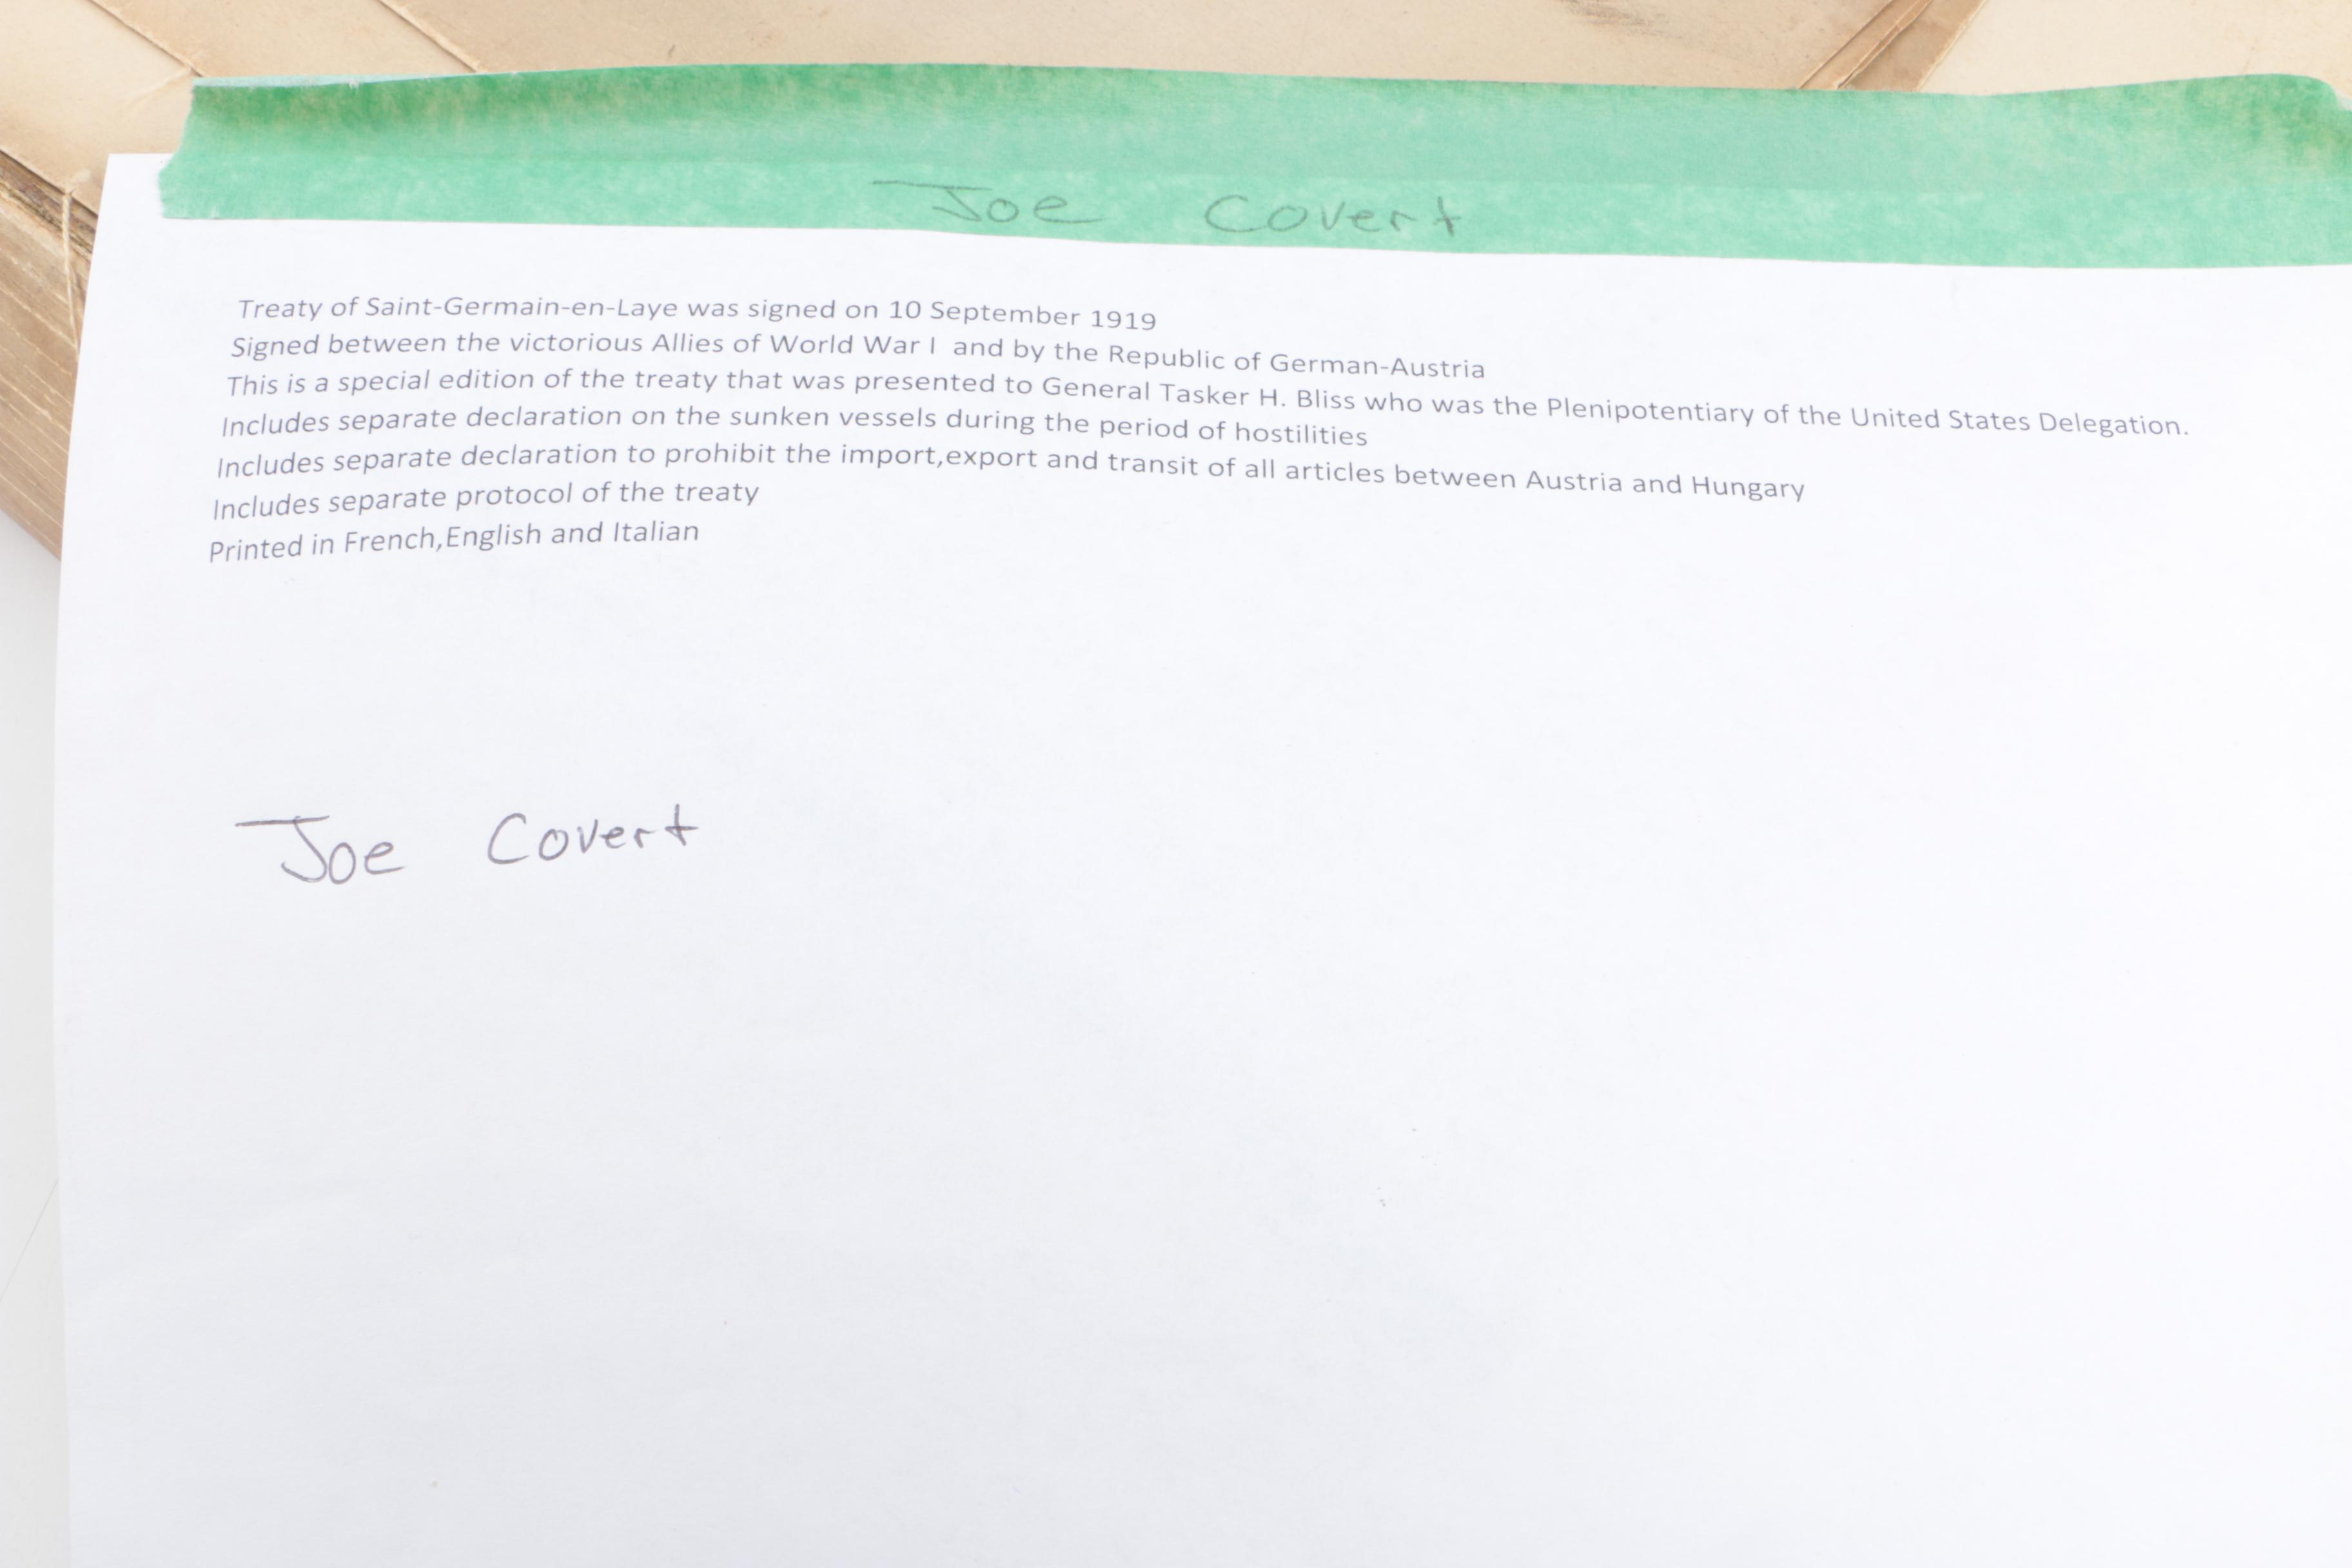 Joe Covert
Treaty of Saint-Germain-en-Laye was signed on 10 September 1919
Signed between the victorious Allies of World War I and by the Republic of German-Austria
This is a special edition of the treaty that was presented to General Tasker H. Bliss who was the Plenipotentiary of the United States Delegation.
Includes separate declaration on the sunken vessels during the period of hostilities
Includes separate declaration to prohibit the import,export and transit of all articles between Austria and Hungary
Includes separate protocol of the treaty
Printed in French,English and Italian
Joe Covert